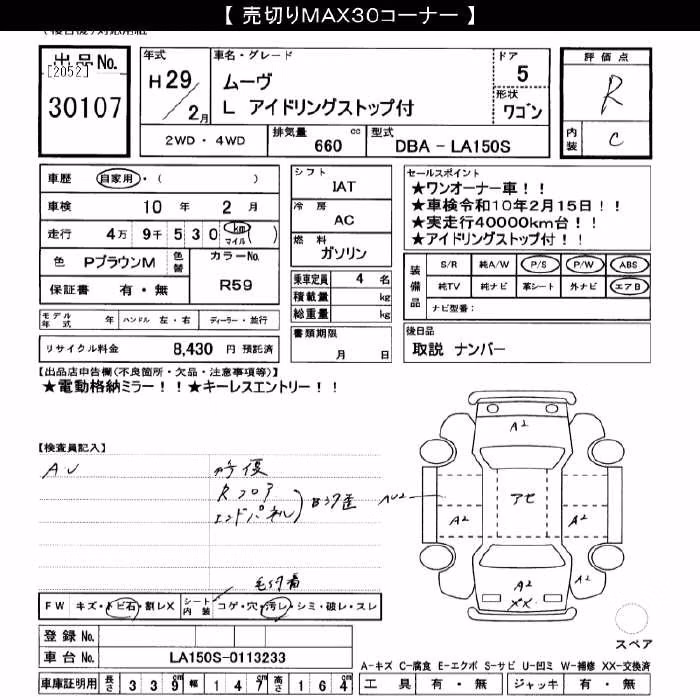 【 売切りMAX30コーナー 】
出品No.
[2052]
30107
年式
H29
2月
車名・グレード
ムーヴ
L アイドリングストップ付
ドア
5
形状
ワゴン
評価点
R
内装
C
2WD・4WD
排気量 660 cc
型式 DBA - LA150S
車歴 自家用・( )
車検 10 年 2 月
走行 4万 9千 5 3 0 (km マイル)
色 PブラウンM
色替
カラーNo.
R59
保証書 有・無
シフト
IAT
冷房
AC
燃料
ガソリン
乗車定員 4 名
積載量 kg
総重量 kg
セールスポイント
★ワンオーナー車！！
★車検令和10年2月15日！！
★実走行40000km台！！
★アイドリングストップ付！！
装備品
S/R 純A/W P/S P/W ABS
純TV 純ナビ 革シート 外ナビ エアB
ナビ型番：
モデル年式 年 ハンドル 左・右 ディーラー・並行
リサイクル料金 8,430 円 預託済
書類期限
月 日
後日品
取説 ナンバー
【出品店申告欄(不良箇所・欠品・注意事項等)】
★電動格納ミラー！！★キーレスエントリー！！
【検査員記入】
AU
修復
Rフロア
エンドパネル
A2
アセ
AU2
A2
A2
A2
A2
XX
毛付着
FW キズ・トビ石・割レX
シート内装 コゲ・穴・汚レ・シミ・破レ・スレ
登録No.
車台No. LA150S-0113233
スペア
A-キズ C-腐食 E-エクボ S-サビ U-凹ミ W-補修 XX-交換済
車庫証明用 長さ 3 3 9 cm 幅 1 4 7 cm 高さ 1 6 4 cm
工具 有・無 ジャッキ 有・無